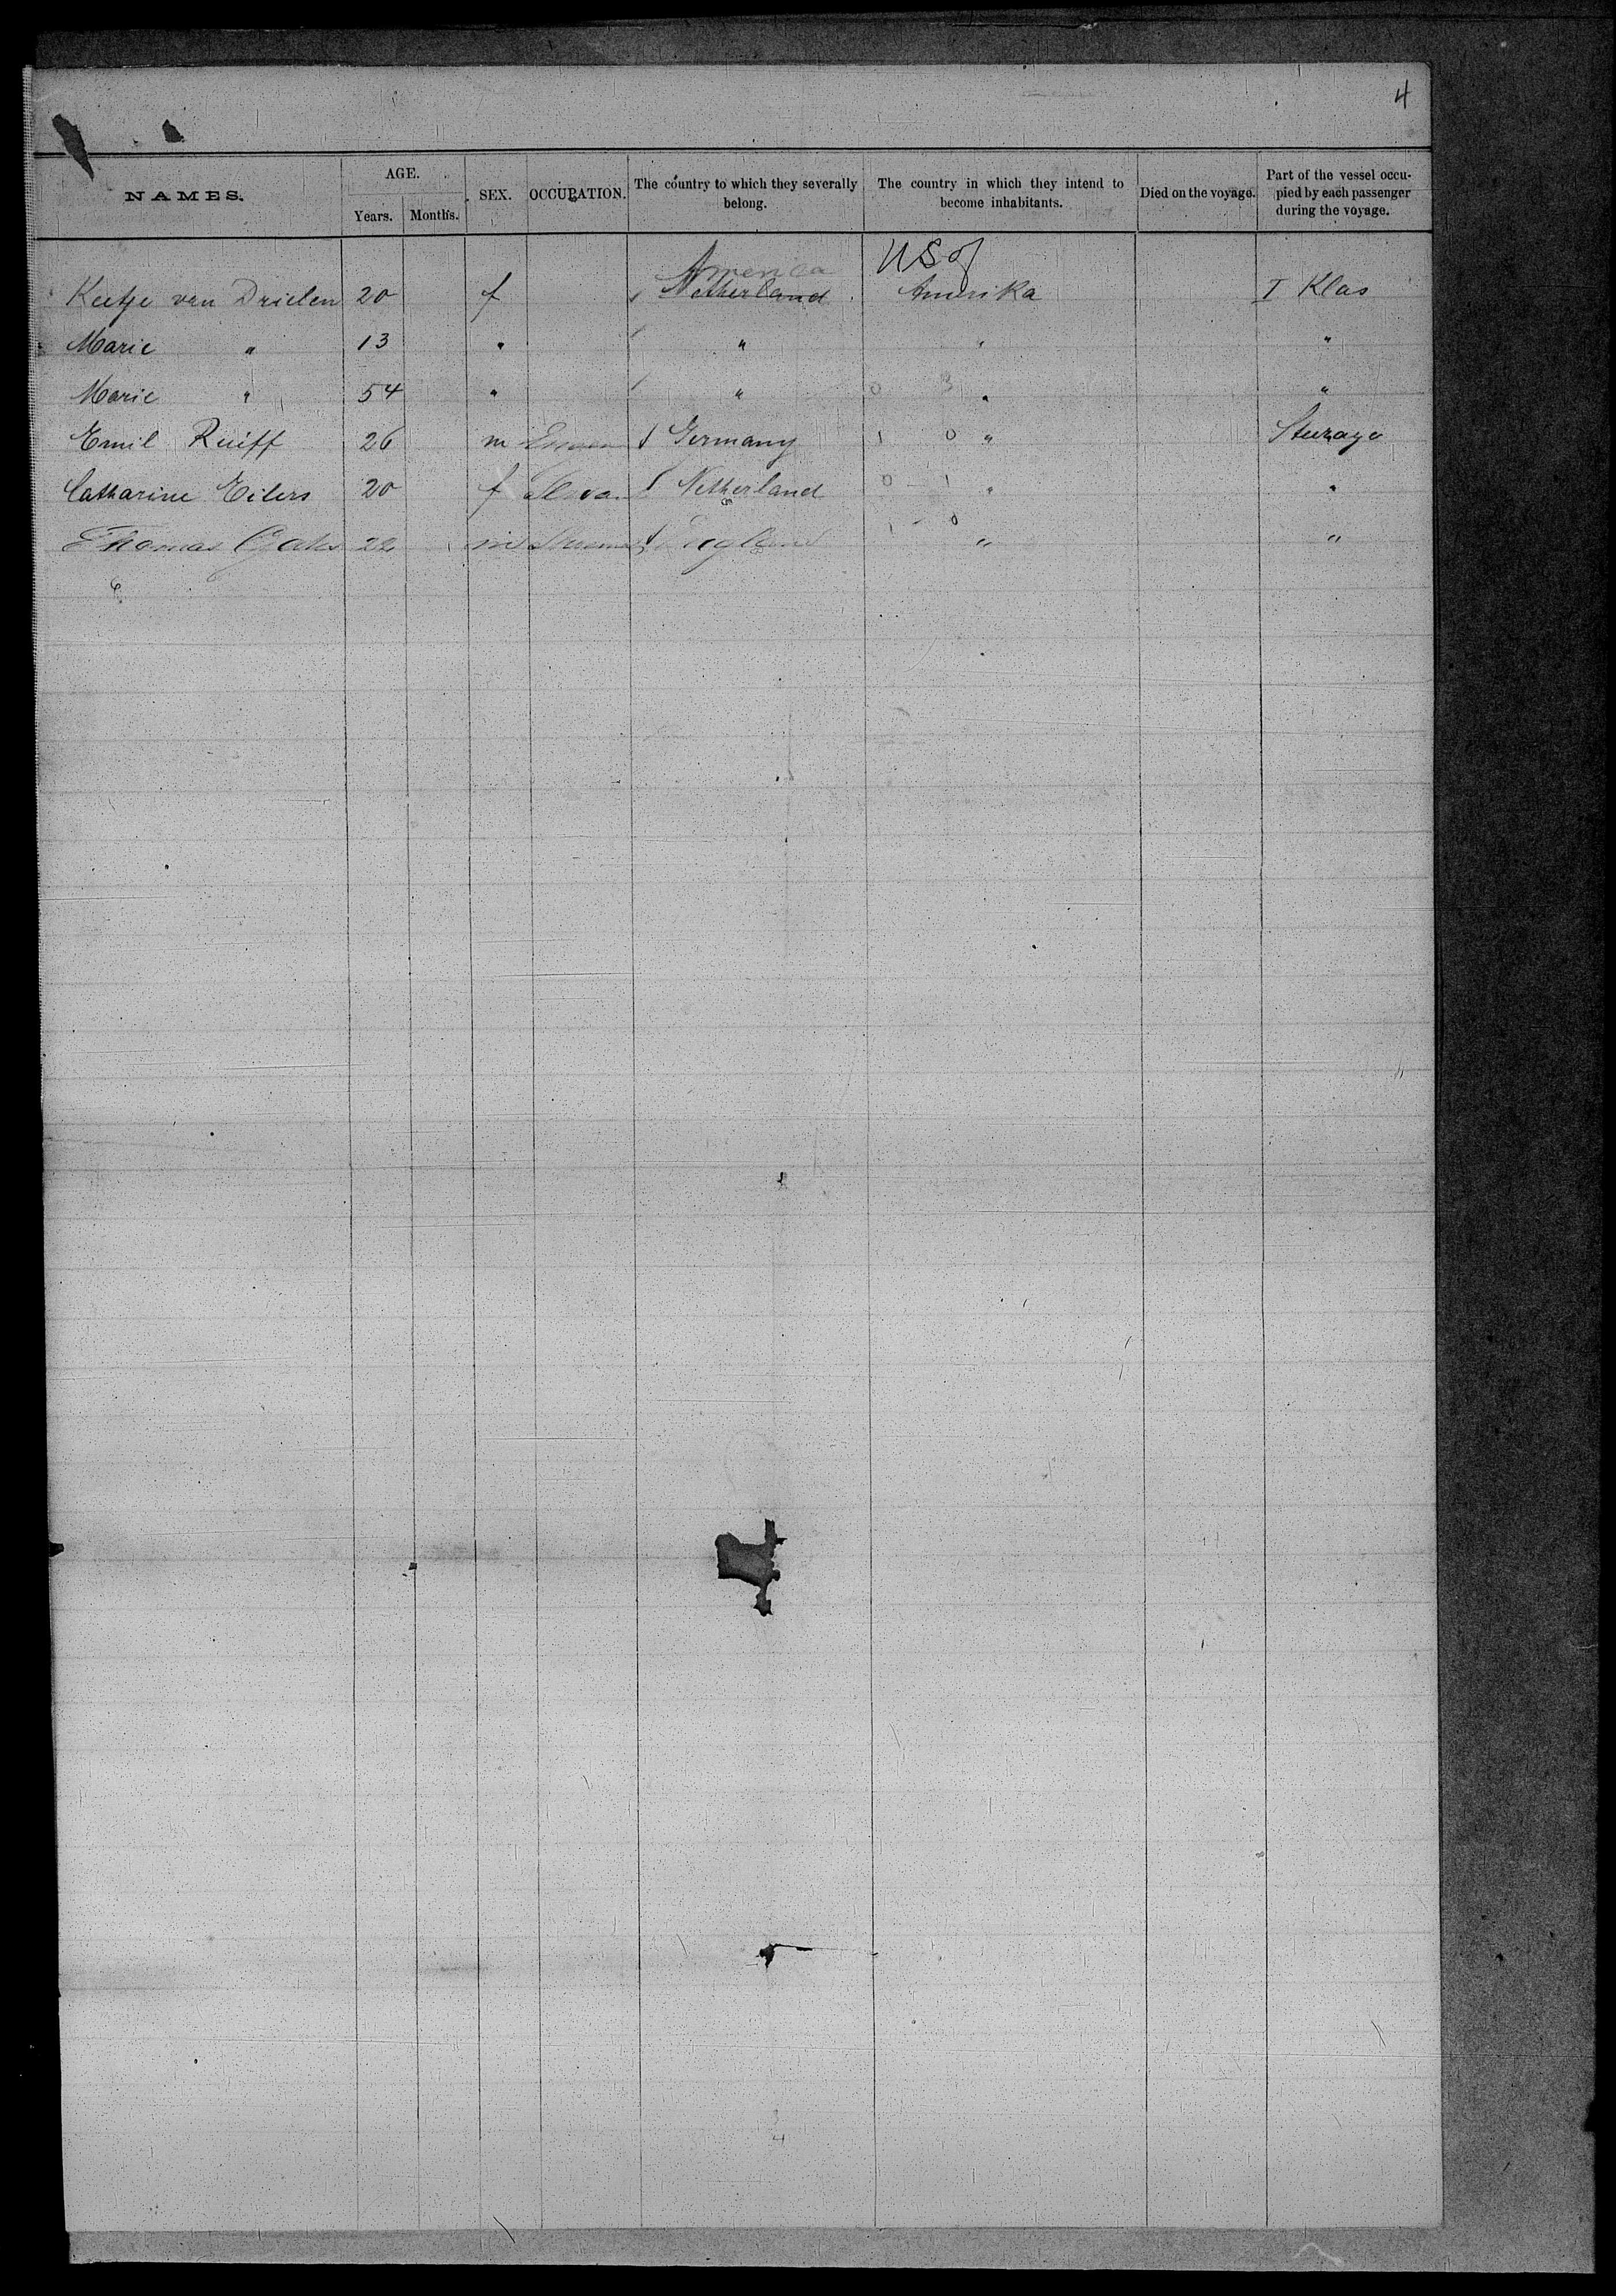 4
NAMES. AGE. Years. Months. SEX. OCCUPATION. The country to which they severally belong. The country in which they intend to become inhabitants. Died on the voyage. Part of the vessel occupied by each passenger during the voyage.
America USof
Keetje van Drielen 20 f Netherland Amerika I Klas
Marie " 13 " " " "
Marie " 54 " " 0 3 " "
Emil Ruiff 26 m Germany 1 0 " Steerage
Catharine Eilers 20 f Netherland 0 - 1 " "
Thomas 22 m England 1 - 0 " "